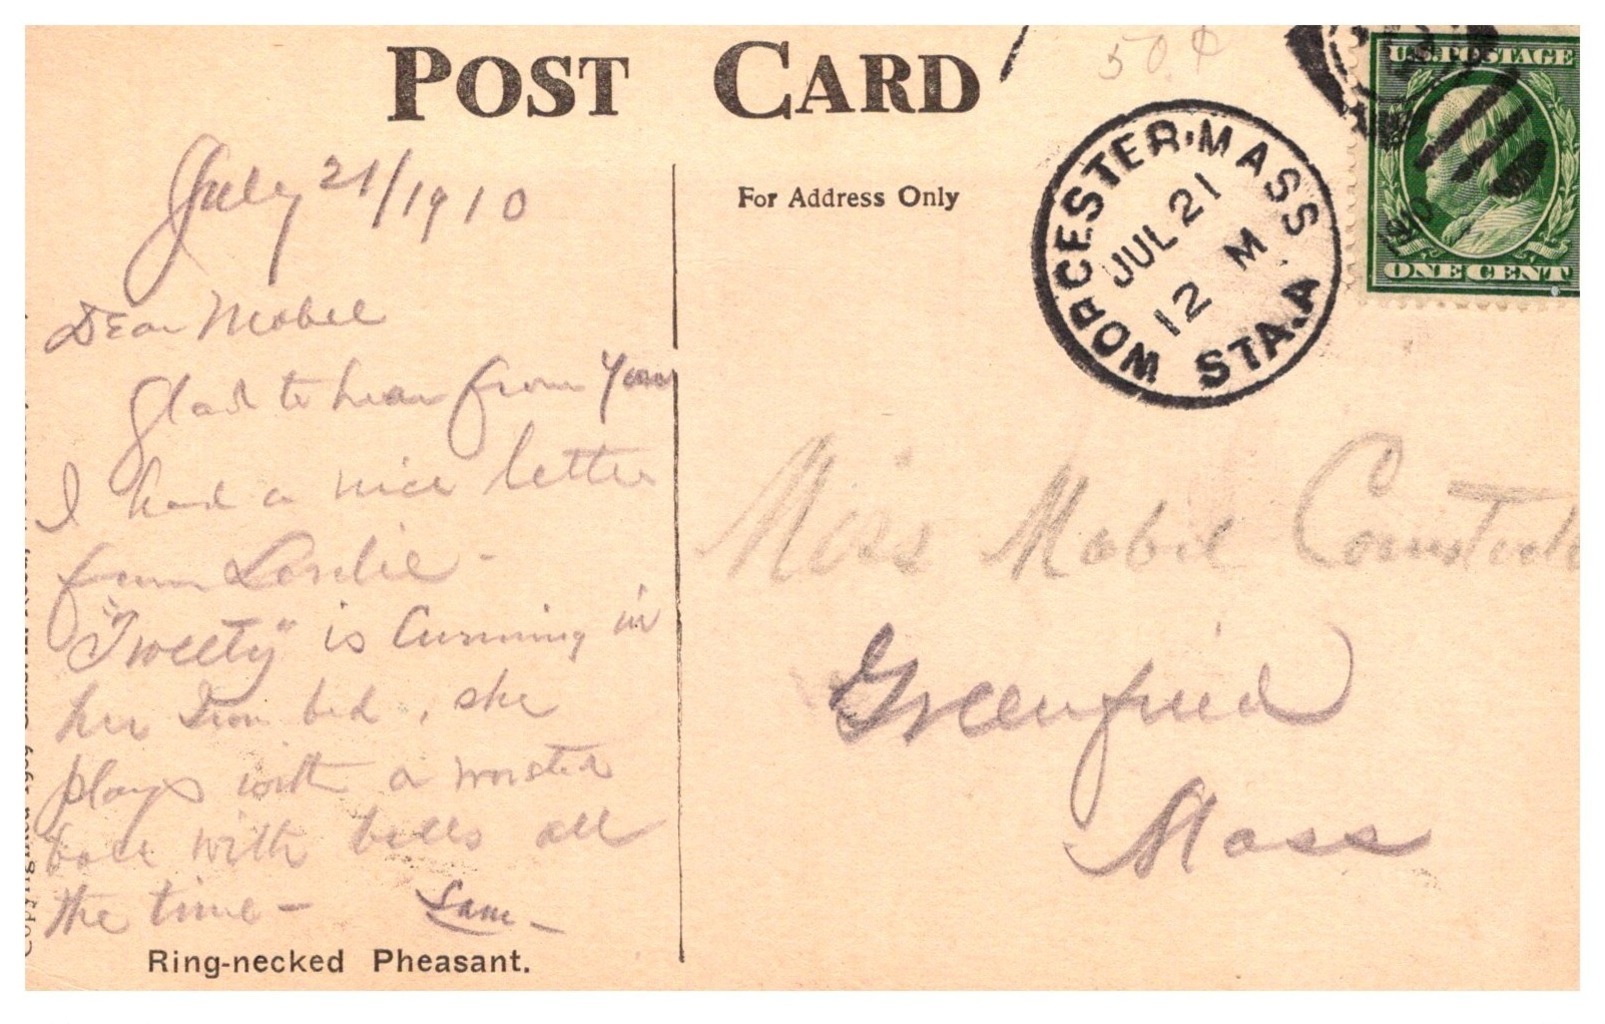 POST CARD
50¢
For Address Only
WORCESTER, MASS.
JUL 21
12 M
STA. A
U.S. POSTAGE
ONE CENT
July 21/1910
Dear Mabel
Glad to hear from you
I had a nice letter
from -
"Tweety" is Cunning in
her Iron bed, she
plays with a worsted
ball with bells all
the time -
Miss Mabel Comstock
Greenfield
Mass
Ring-necked Pheasant.